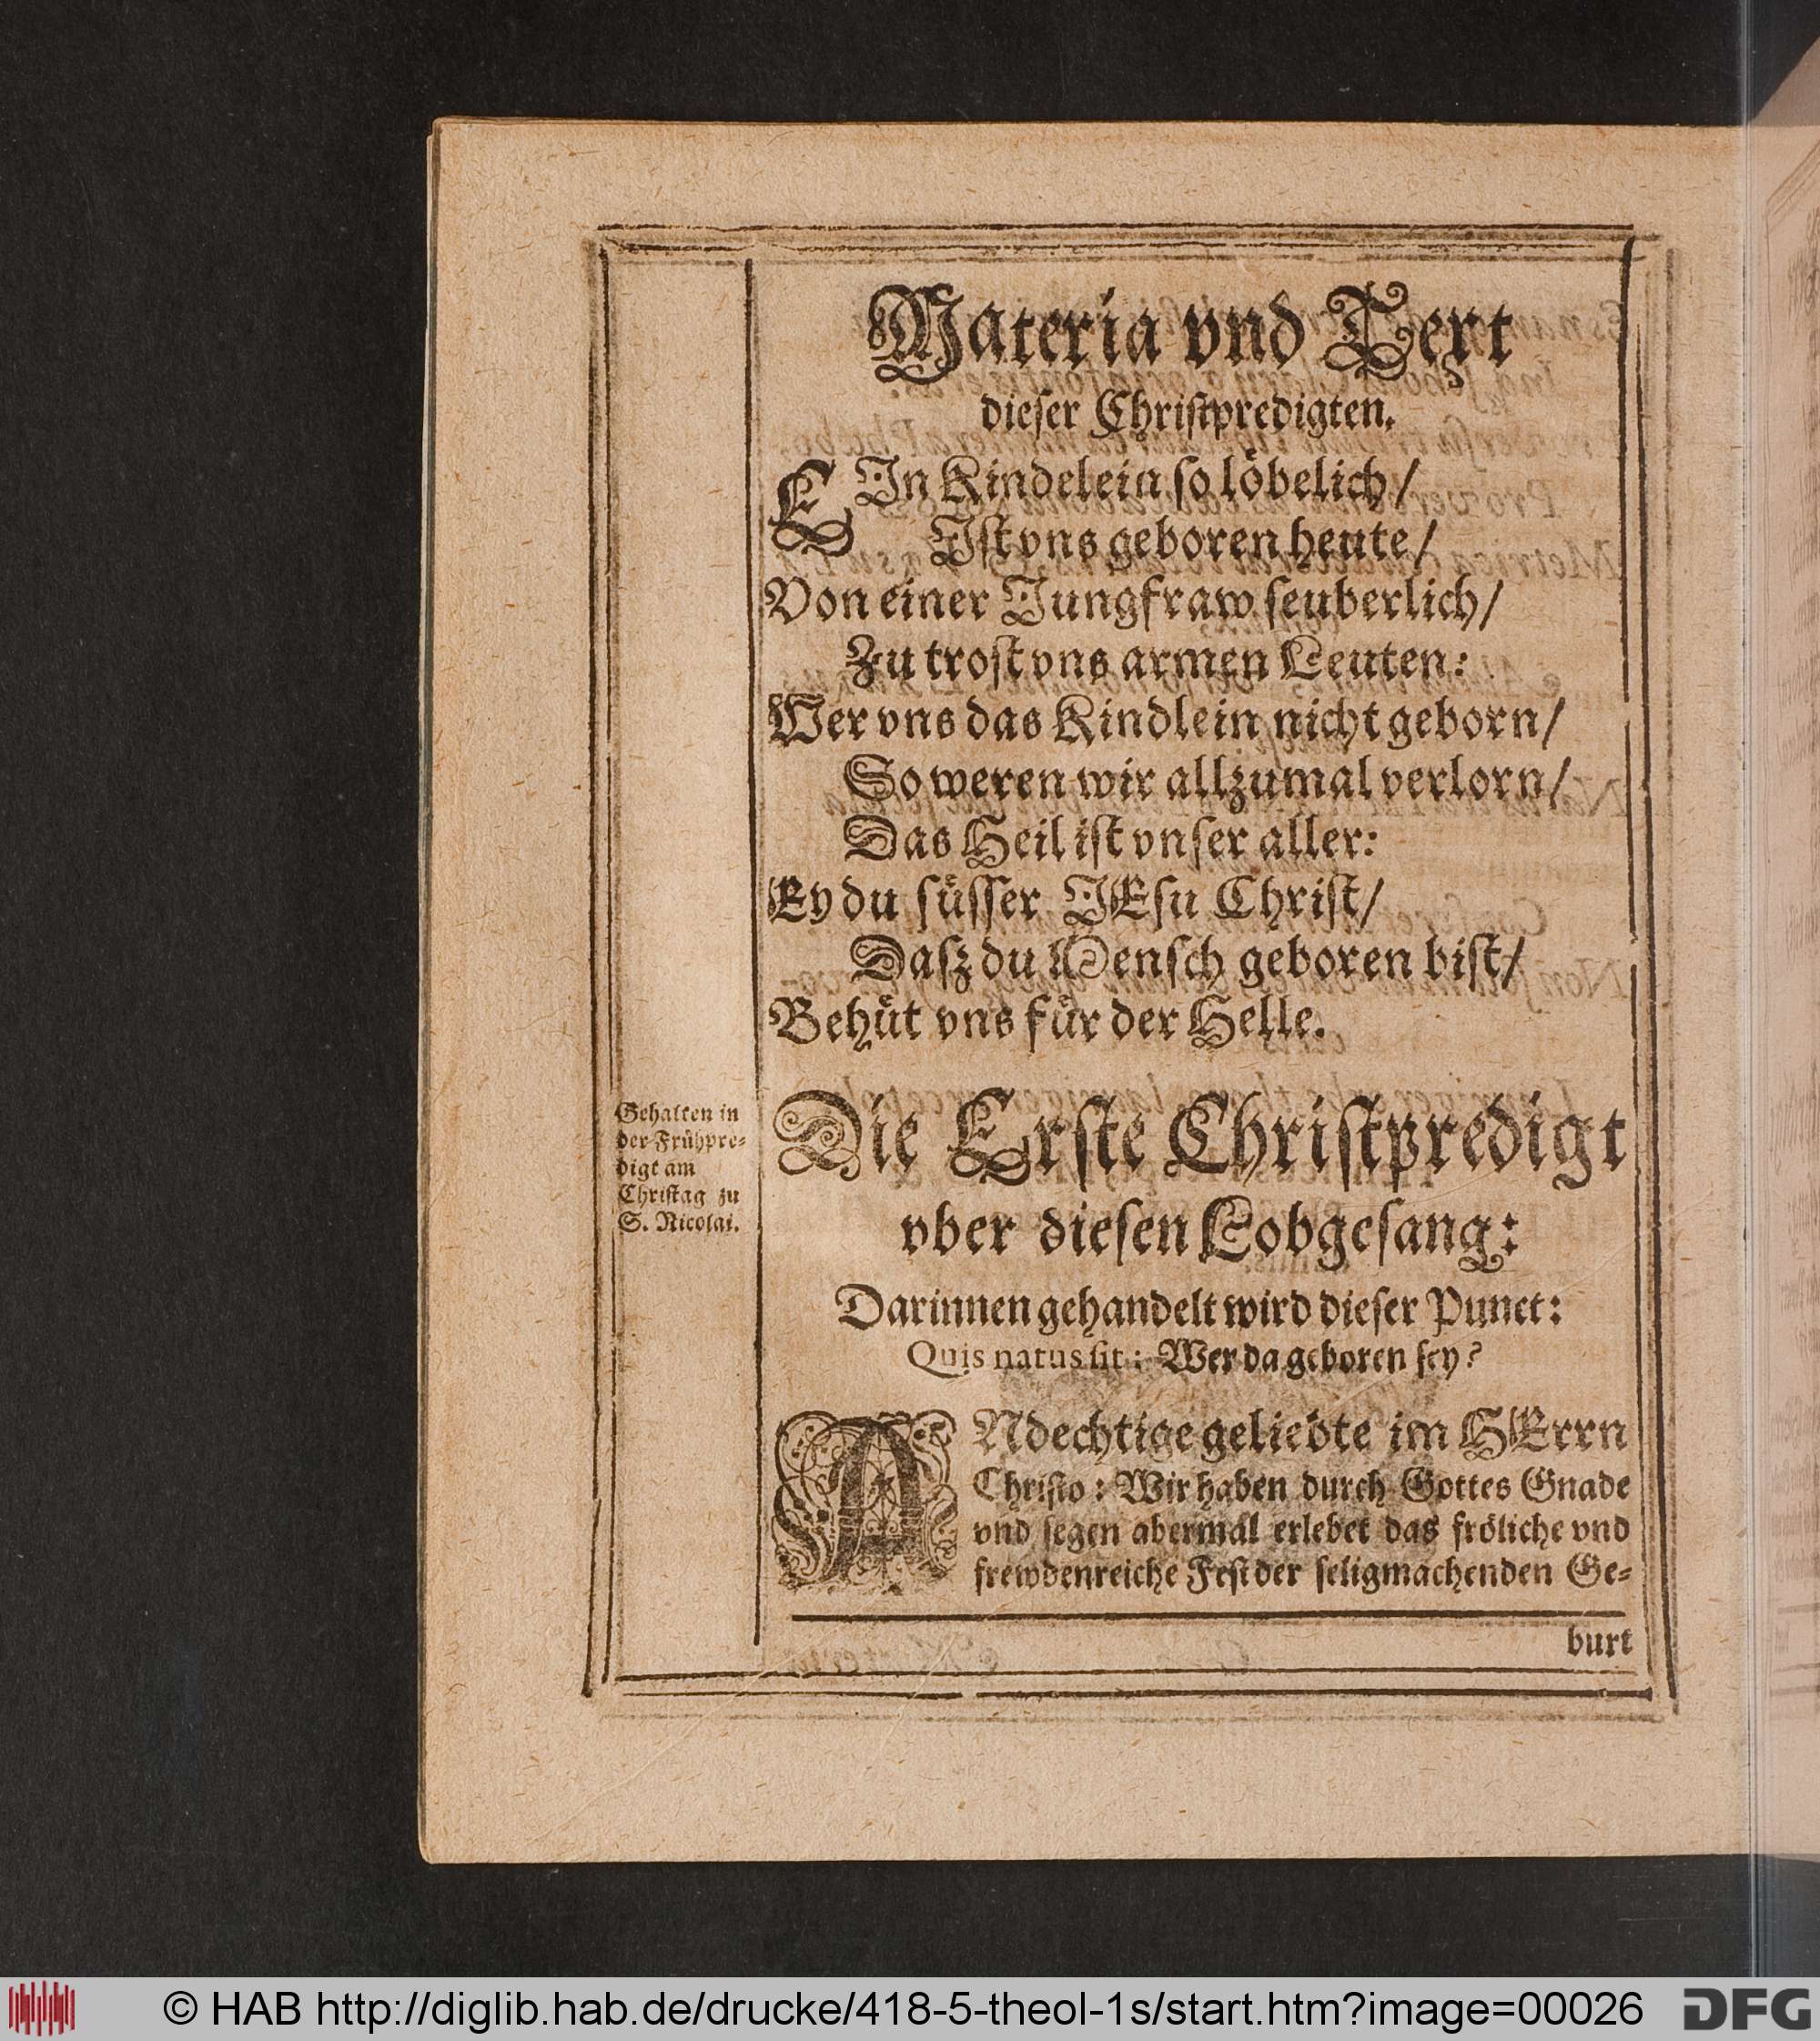 Materia vnd Text
dieser Christpredigten.
EIn Kindelein so löbelich/
Ist vns geboren heute/
Von einer Jungfraw seuberlich/
Zu trost vns armen Leuten:
Wer vns das Kindlein nicht geborn/
So weren wir allzumal verlorn/
Das Heil ist vnser aller:
Ey du süsser JEsu Christ/
Dasz du Mensch geboren bist/
Behüt vns für der Helle.
Gehalten in
der Frühpre-
digt am
Christag zu
S. Nicolai.
Die Erste Christpredigt
vber diesen Lobgesang:
Darinnen gehandelt wird dieser Punct:
Quis natus sit: Wer da geboren sey?
ANdechtige geliebte im HErrn
Christo: Wir haben durch Gottes Gnade
vnd segen abermal erlebet das fröliche vnd
frewdenreiche Fest der seligmachenden Ge-
burt
© HAB http://diglib.hab.de/drucke/418-5-theol-1s/start.htm?image=00026
DFG